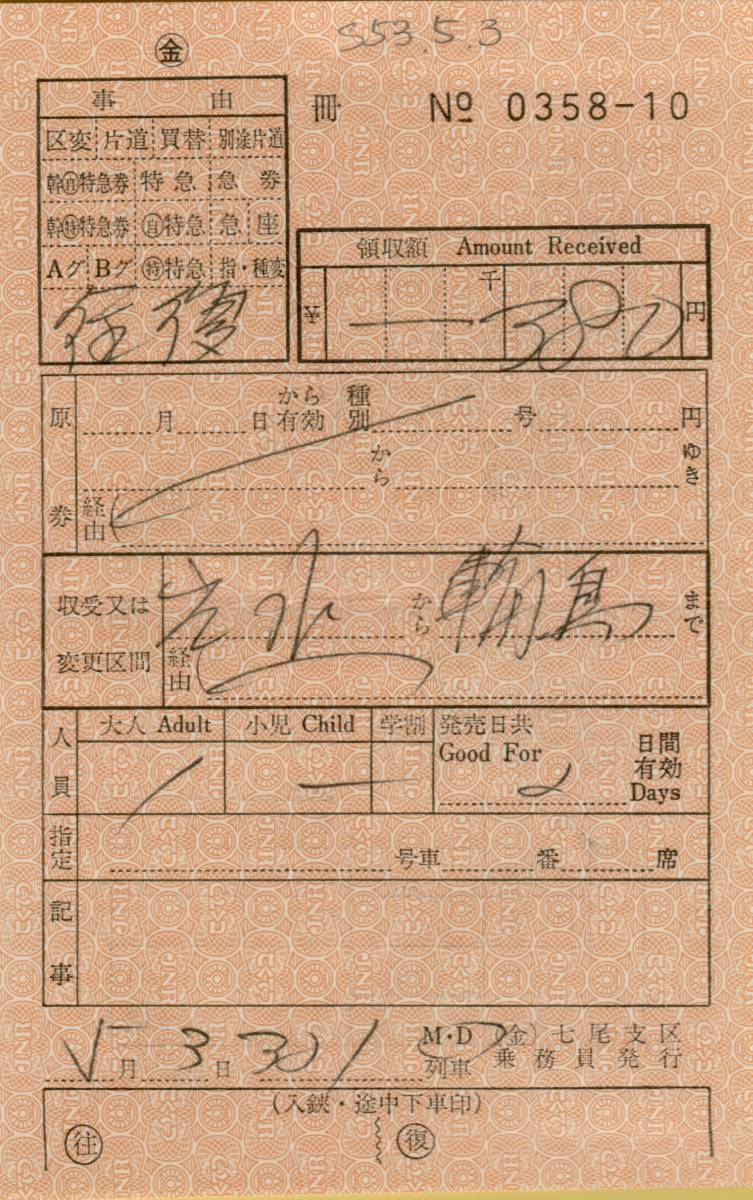 S53.5.3
㊎
事由
冊 № 0358-10
区変 片道 買替 別途片道
幹㊐特急券 特急 急券
幹㊕特急券 ㊐特急 急座
Aグ Bグ ㊕特急 指・種変
往復
領収額 Amount Received
千
¥ 380 円
原券
から 種
月 日有効 別 号 円
から ゆき
経由
収受又は変更区間
から 輪島 まで
経由
人員
大人 Adult 小児 Child 学割 発売日共
Good For 2 日間有効 Days
1
指定
号車 番 席
記事
5月3日 301 M・D列車
(金)七尾支区
乗務員発行
(入鋏・途中下車印)
往 復